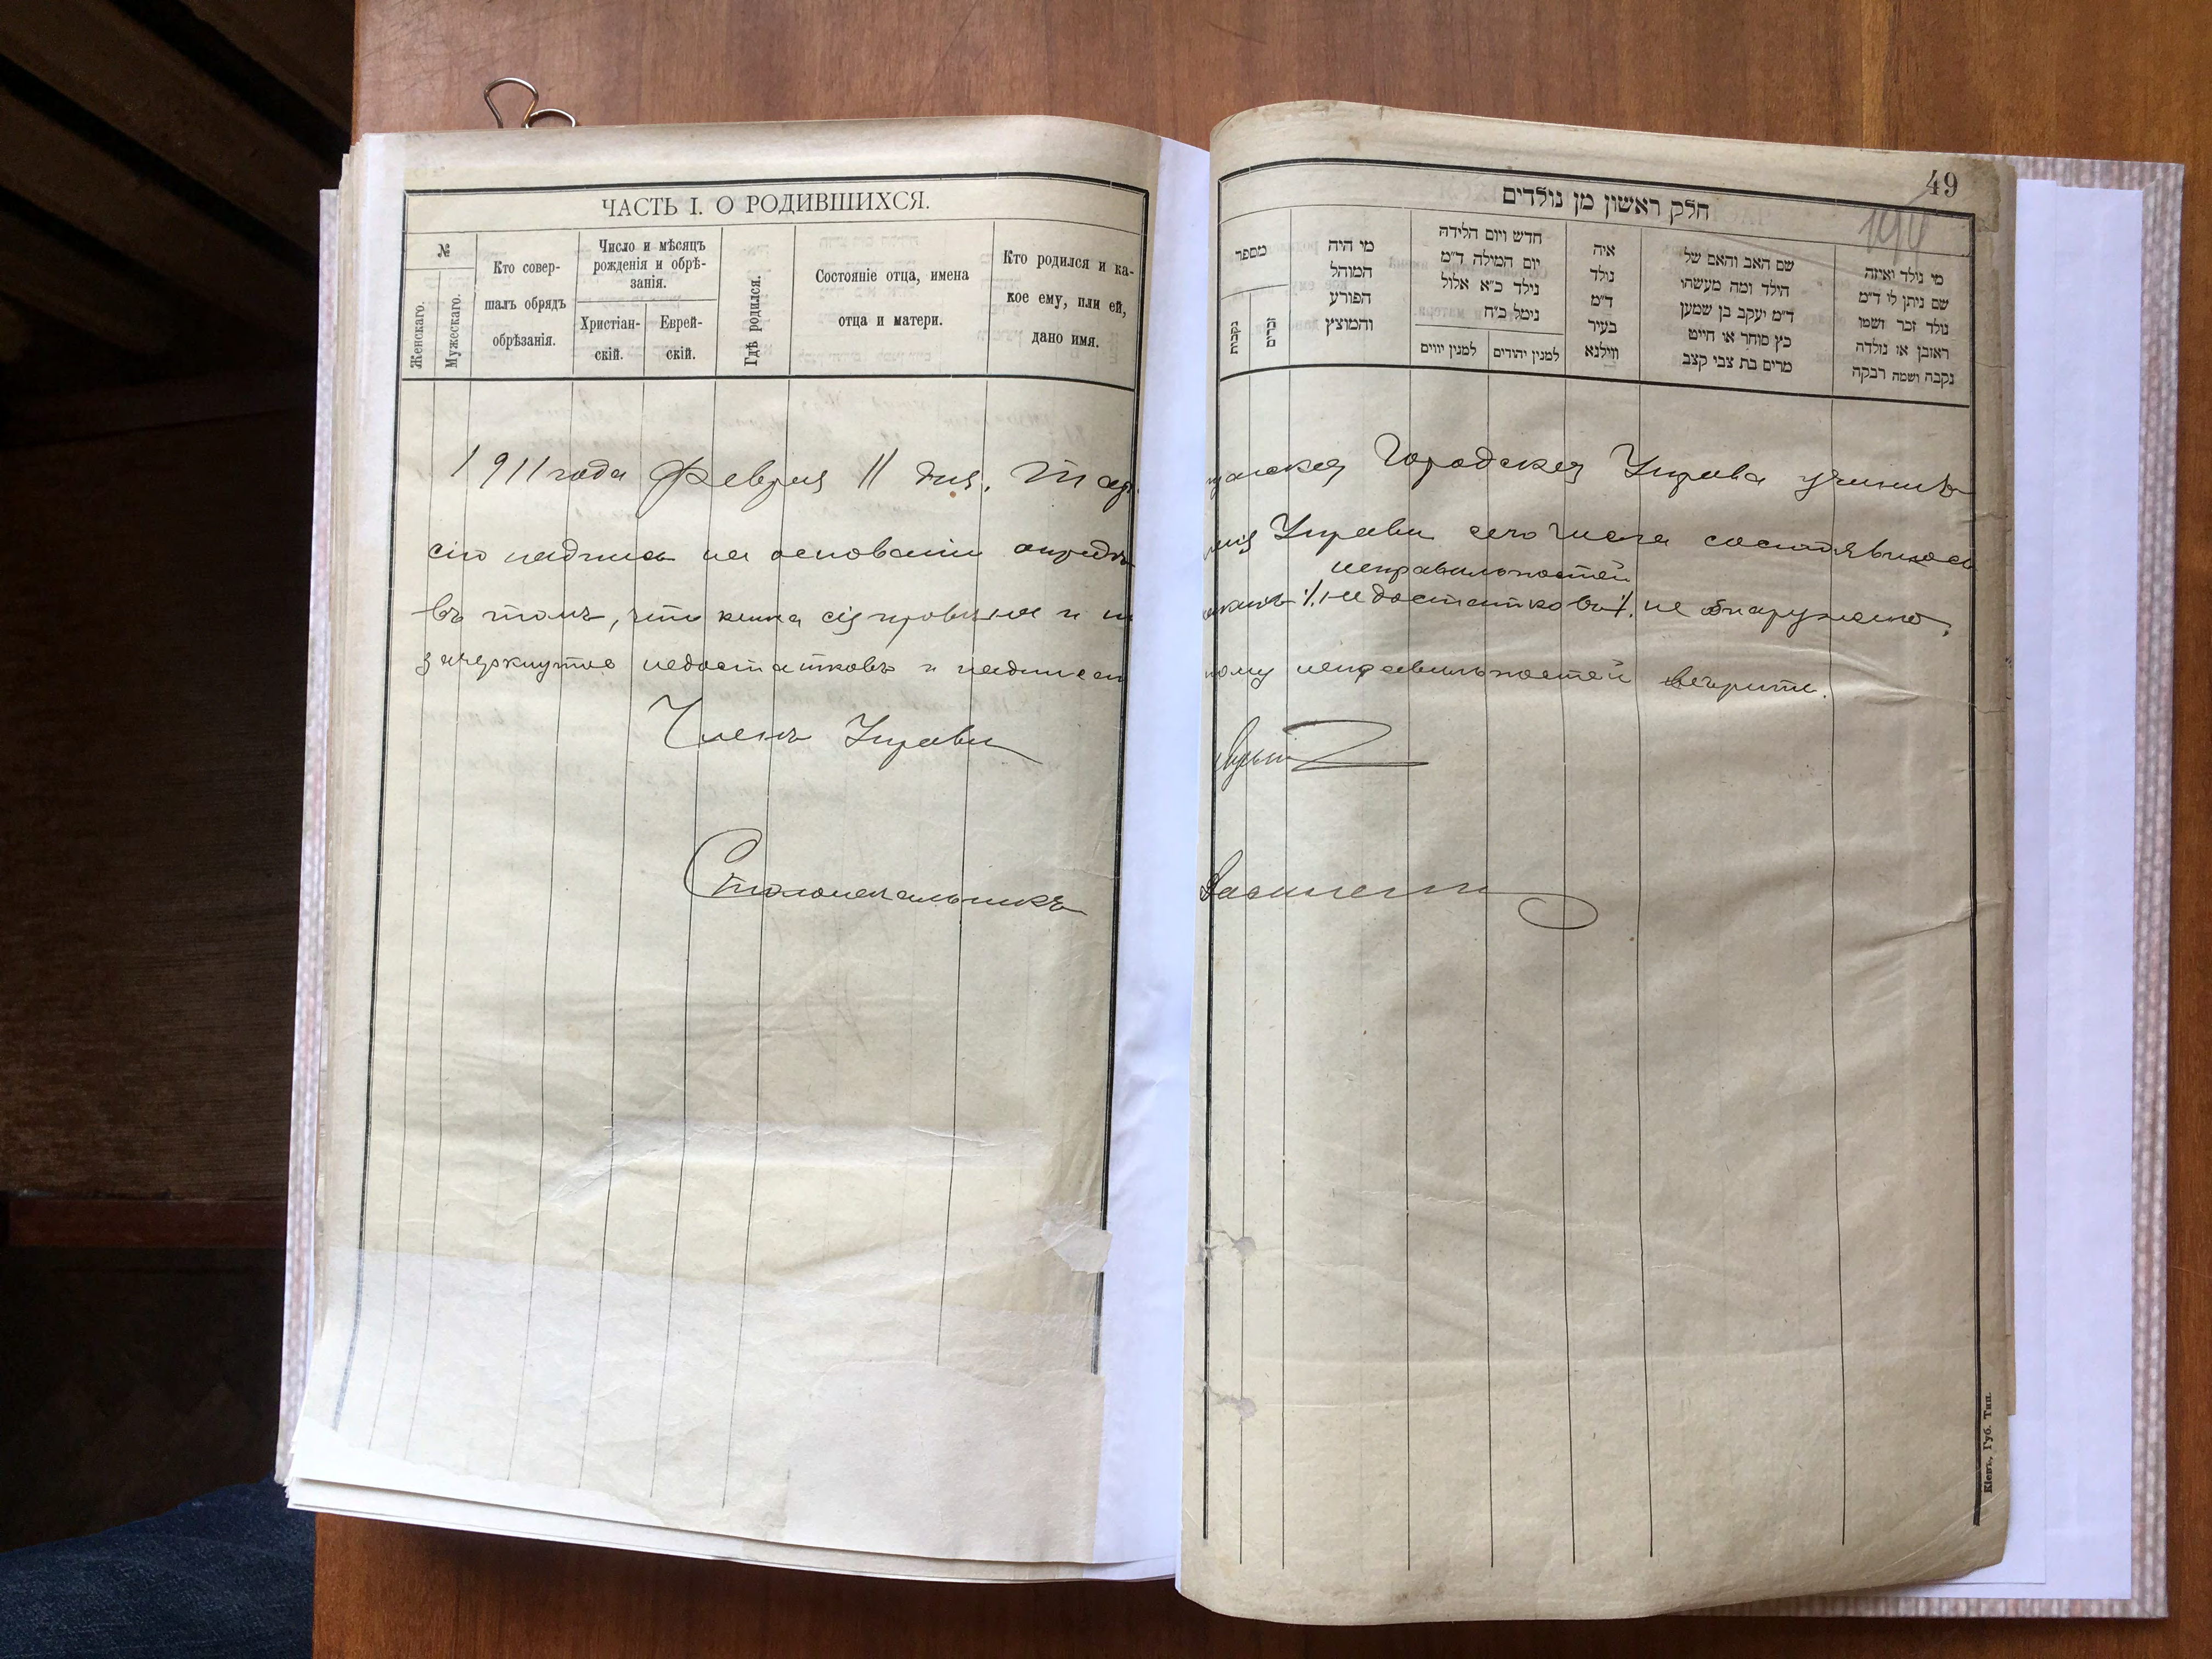 ЧАСТЬ I. О РОДИВШИХСЯ.
№
Женскаго.
Мужескаго.
Кто совер-
шалъ обрядъ
обрѣзанія.
Число и мѣсяцъ
рожденія и обрѣ-
занія.
Христіан-
скій.
Еврей-
скій.
Гдѣ родился.
Состояніе отца, имена
отца и матери.
Кто родился и ка-
кое ему, или ей,
дано имя.
49
חלק ראשון מן נולדים
מספר
נקבות
זכרים
מי היה
המוהל
הפורע
והמוצץ
חדש ויום הלידה
יום המילה ד״מ
נילד כ״א אלול
נימל כ״ח
למנין יווים
למנין יהודים
איה
נולד
ד״מ
בעיר
ווילנא
שם האב והאם של
הילד ומה מעשהו
ד״מ יעקב בן שמעון
כץ סוחר או חייט
מרים בת צבי קצב
מי נולד ואיזה
שם ניתן לו ד״מ
נולד זכר ושמו
ראובן או נולדה
נקבה ושמה רבקה
1911 года Февраля 11 дня. Городская Управа учинила
сію надпись на основаніи Управы сего числа состоявшагося
неправильностей
въ томъ, что книга сія провѣрена и недостатковъ не обнаружено.
зачеркнутое недостатковъ и неправильностей вѣрить.
Членъ Управы
Столоначальникъ
Кіевъ, Губ. Тип.